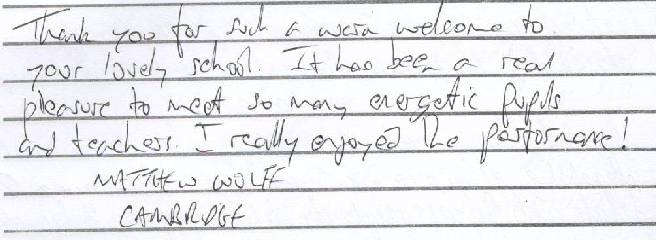 Thank you for such a warm welcome to
your lovely school. It has been a real
pleasure to meet so many energetic pupils
and teachers. I really enjoyed the performance!
MATTHEW WOLFF
CAMBRIDGE